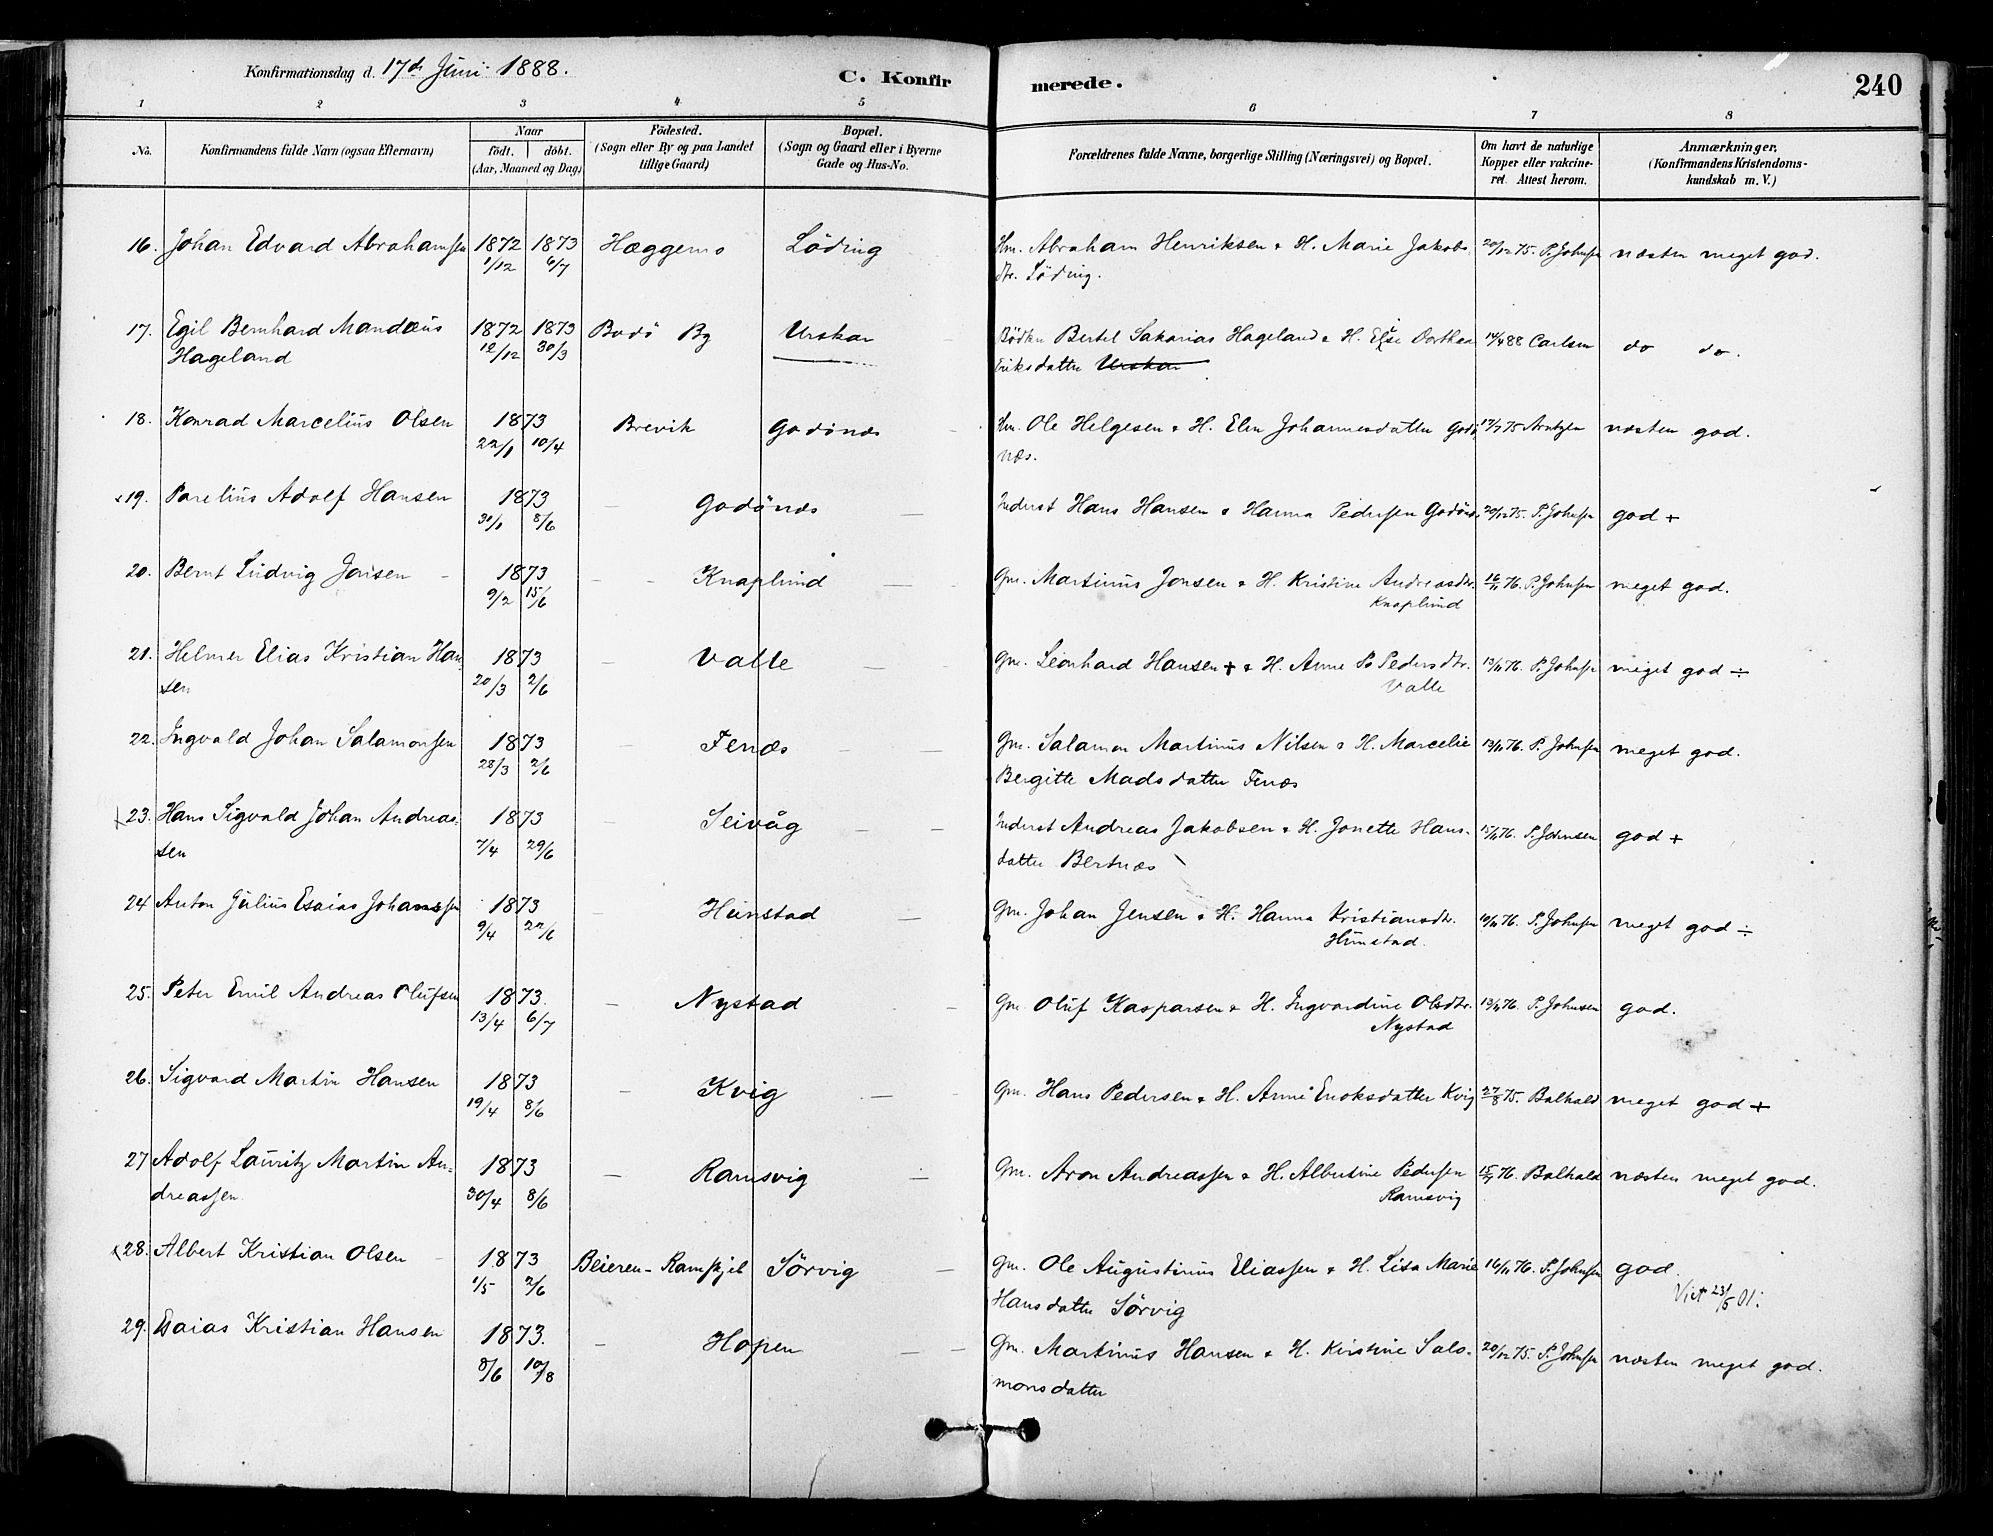 Konfirmationsdag d. 17de Juni 1888.
C. Konfirmerede.
240
1 2 3 4 5 6 7 8
No. Konfirmandens fulde Navn (ogsaa Efternavn) Naar födt. döbt. (Aar, Maaned og Dag) Födested. (Sogn eller By og paa Landet tillige Gaard) Bopæl. (Sogn og Gaard eller i Byerne Gade og Hus-No. Forældrenes fulde Navne, borgerlige Stilling (Næringsvei) og Bopæl. Om havt de naturlige Kopper eller vakcineret. Attest herom. Anmærkninger. (Konfirmandens Kristendomskundskab m. V.)
16. Johan Edvard Abrahamsen 1872 1/12 1873 6/7 Hæggemo Löding Gm. Abraham Henriksen & H. Marie Jakobs
dtr. Löding. 20/12 75. P. Johnsen næsten meget god.
17. Egil Bernhard Mandæus
Hageland 1872 12/12 1873 30/3 Bodö By Urskar Bödker Bertel Sakarias Hageland & H. Else Dorthea
Eriksdatter Urskar 14/4 88 Carlsen do do.
18. Konrad Marcelius Olsen 1873 22/1 10/4 Brevik Godönæs Gm. Ole Helgesen & H. Elen Johannesdatter Godö
næs. 17/7 75 Arntzen næsten god.
x19. Parelius Adolf Hansen 1873 30/1 8/6 – Godönæs – Inderst Hans Hansen & Hanna Pedersen Godönæs 20/12 75. P. Johnsen god +
20. Bernt Ludvig Jonsen 1873 9/2 15/6 – Knaplund – Gm. Martinus Jonsen & H. Kristine Andreasdtr.
Knaplund 16/11 76. P. Johnsen meget god.
21. Helmer Elias Kristian Han
sen 1873 20/3 2/6 – Valle – Gm. Leonhard Hansen + & H. Anne P. Pedersdtr.
Valle 13/11 76. P. Johnsen meget god ÷
22. Ingvald Johan Salamonsen 1873 28/3 2/6 – Fenæs – Gm. Salamon Martinus Nilsen & H. Marcelie
Bergitte Madsdatter Fenæs 13/11 76. P. Johnsen meget god.
x23. Hans Sigvald Johan Andreas-
sen 1873 7/4 29/6 Seivåg – Inderst Andreas Jakobsen & H. Jonette Hans-
datter Bertnæs 15/11 76. P. Johnsen god +
24 Anton Julius Esaias Johanssen 1873 9/4 22/6 – Hunstad – Gm. Johan Jensen & H. Hanna Kristiansdtr.
Hunstad. 10/11 76. P. Johnsen meget god ÷
25. Peter Emil Andreas Olufsen 1873. 13/4 6/7 – Nystad – Gm. Oluf Kasparsen & H. Ingvardine Olsdtr.
Nystad 13/11 76. P. Johnsen god.
26. Sigvard Martin Hansen 1873 19/4 8/6 – Kvig – Gm. Hans Pedersen & H. Anne Enoksdatter Kvig 27/8 75. Balhald meget god +
27 Adolf Lauritz Martin An-
dreassen. 1873 30/4 8/6 – Ramsvig – Gm. Aron Andreassen & H. Albertine Pedersen
Ramsvig 76. Balhald næsten meget god.
x28. Albert Kristian Olsen 1873 1/5 2/6 Beieren – Ramskjel Sörvig – Gm. Ole Augustinus Eliassen & H. Lisa Marie
Hansdatter Sörvig 16/11 76. P. Johnsen god.
Viet 23/5 01.
29. Esaias Kristian Hansen 1873. 8/6 10/8 – Hopen – Gm. Martinus Hansen & H. Kirstine Salo-
monsdatter 20/12 75. P. Johnsen næsten meget god.